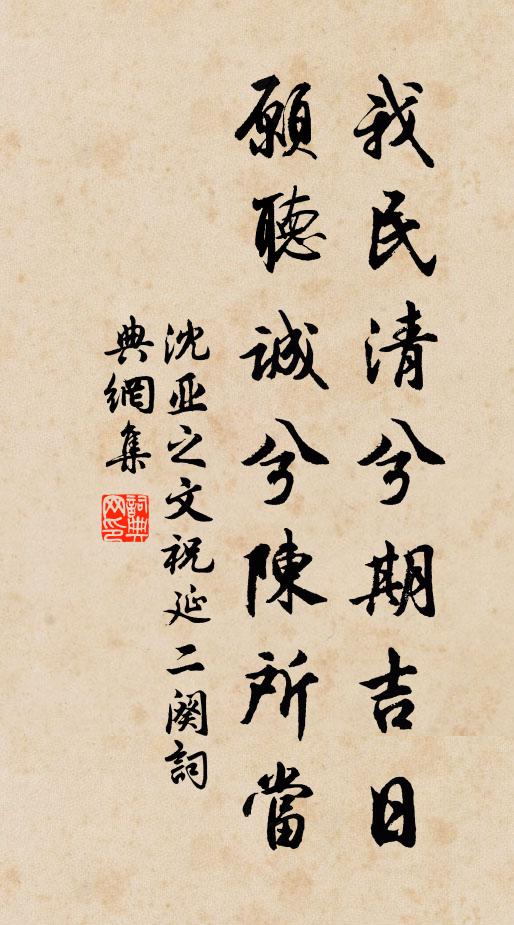 我民清兮期吉日
願聽誠兮陳所當
沈亚之文祝延二闋詞
典網集
詞典网印